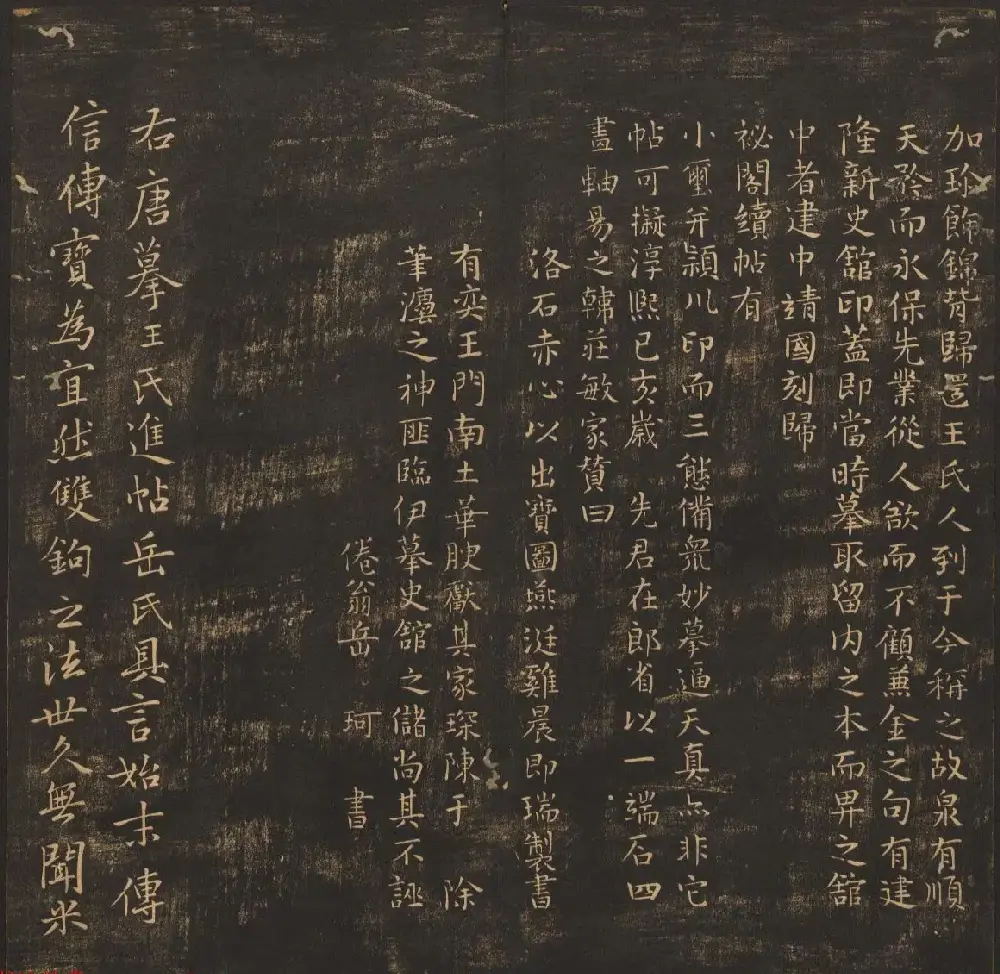 加珎飾錦背歸還王氏人到于今稱之故泉有順
天矜而永保先業從人欲而不顧兼金之句有建
隆新史館印蓋即當時摹取留内之本而畀之館
中者建中靖國刻歸
祕閣續帖有
小璽并潁川印而三態備衆妙摹逼天真亦非它
帖可擬淳熙己亥歲 先君在郎省以一端石四
畫軸易之韓莊敏家贊曰
洛石赤心以出寶圖燕涎雞晨即瑞製書
有奕王門南土華腴獻其家琛陳于 除
筆灋之神匪臨伊摹史館之儲尚其不誣
倦翁岳 珂 書
右唐摹王氏進帖岳氏具言始末傳
信傳寶為宜然雙鉤之法世久無聞米